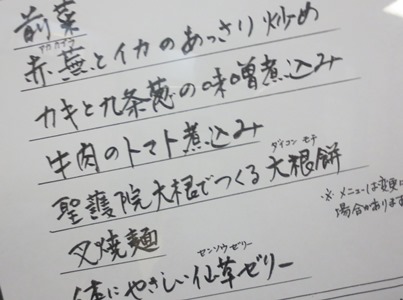 前菜
アカカブラ
赤蕪とイカのあっさり炒め
カキと九条葱の味噌煮込み
牛肉のトマト煮込み
ダイコン モチ
聖護院大根でつくる大根餅
※メニューは変更に
場合があります
叉焼麺
センソウゼリー
体にやさしい仙草ゼリー